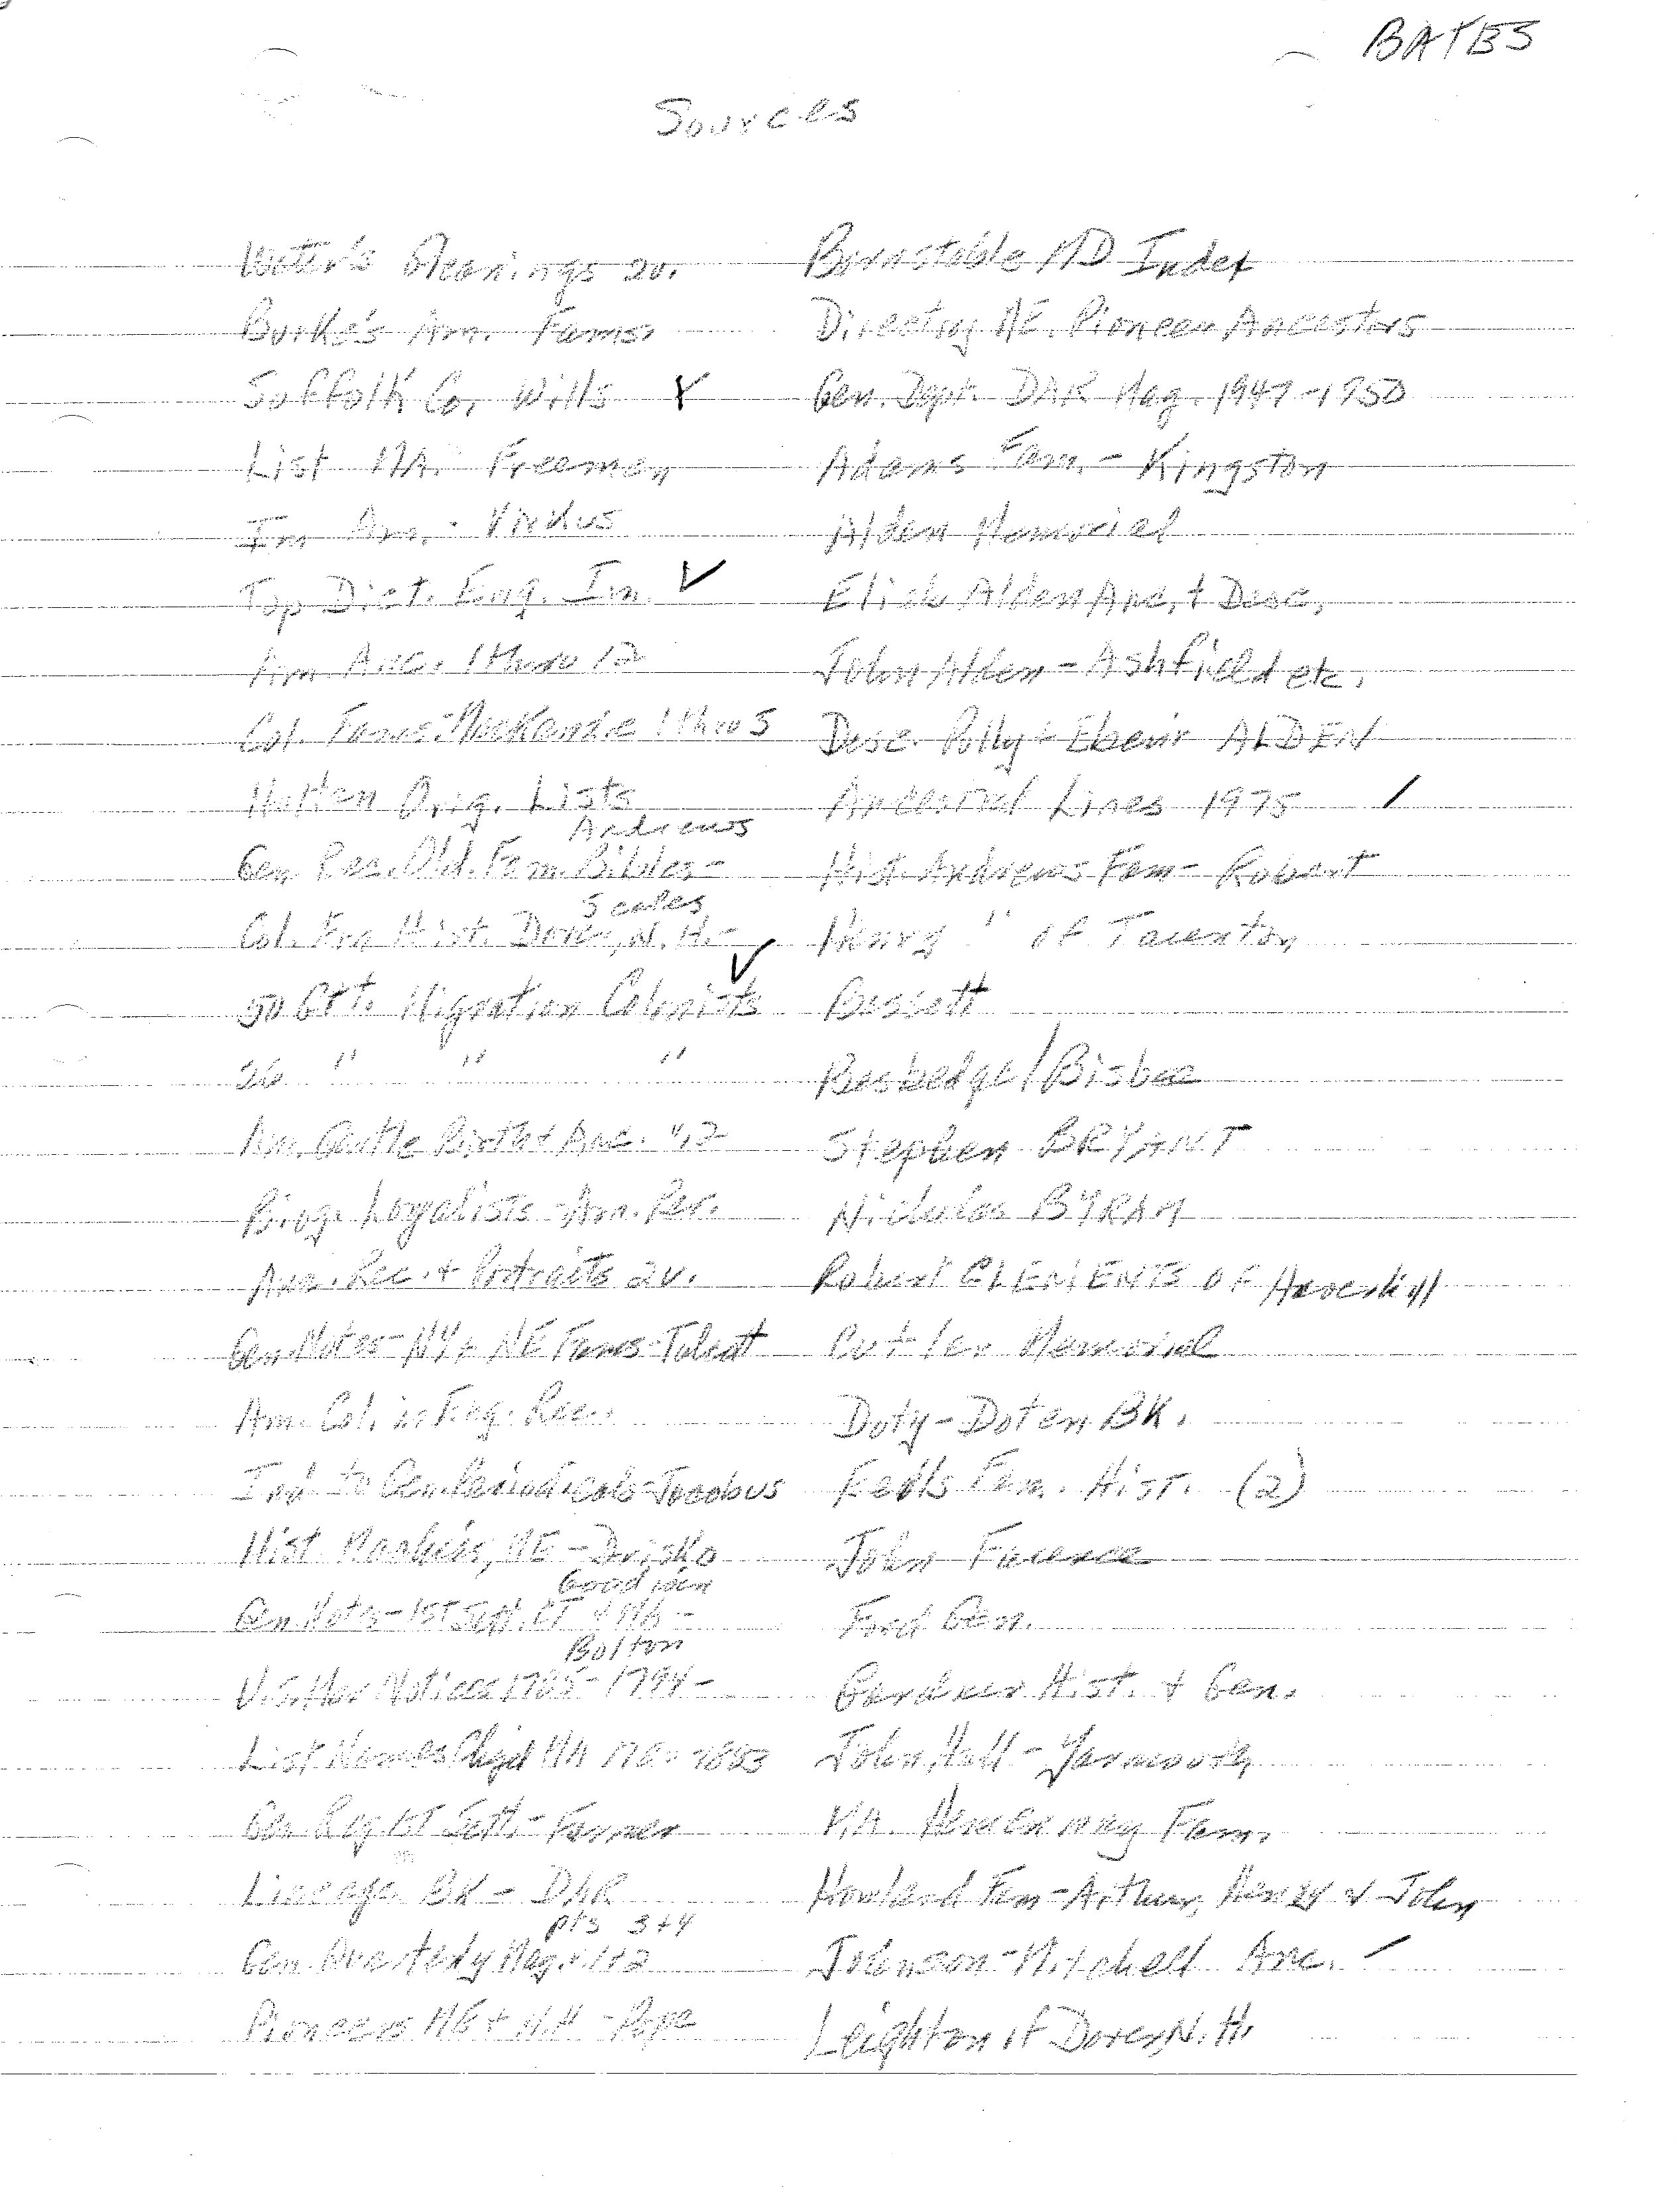 BATES
Sources
Water's Gleanings 2v.
Burke's Am. Fams.
Suffolk Co. Wills
List MA. Freemen
Im Am. - Virkus
Top Dict. Eng. Im. ✓
Am. Anc. 1 thru 12
Col. Fams. - MacKenzie 1 thru 5
Hotten Orig. Lists
Andrews
Gen Rec. Old. Fam. Bibles -
Scales
Col. Era Hist. Dover, N.H. -
50 Grt. Migration Colonists ✓
26 " " "
Am. Gentle Birth & Anc. 1,2
Biog. Loyalists - Am. Rev.
Anc. Rec. & Portraits 2v.
Gen Notes - NY & NE Fams - Talcott
Am. Col. in Eng. Rec.
Ind to Gen. Periodicals - Jacobus
Hist. Machias, ME - Drisko
Goodwin
Gen. Notes - 1st Sett. CT & MA -
Bolton
List Names Chgd MA 1780-1883
Gen Reg 1st Sett. - Farmer
Lineage BK - DAR
pts 3+4
Gen. Quarterly Mag. 1+2
Pioneers ME & N.H - Pope
Barnstable MD Index
Directory NE. Pioneer Ancestors
Gen. Dept. DAR Mag. 1947-1950
Adams Fam. - Kingston
Alden Memorial
Elisha Alden Anc. & Desc.
John Alden - Ashfield etc.
Desc. Polly & Ebenr ALDEN
Ancestral Lines 1975
Hist. Andrews Fam - Robert
Henry " of Taunton
Bassett
Besbedge/Bisbee
Stephen BRYANT
Nicholas BYRAM
Robert CLEMENTS OF Haverhill
Cutler Memorial
Doty-Doten BK.
Fam. Hist. (2)
John Faunce
Ford Gen.
Gardner Hist. & Gen.
John Hall - Yarmouth
Hemenway Fam.
Howland Fam - Arthur, Henry & John
Johnson - Mitchell Anc.
Leighton of Dover, N.H.